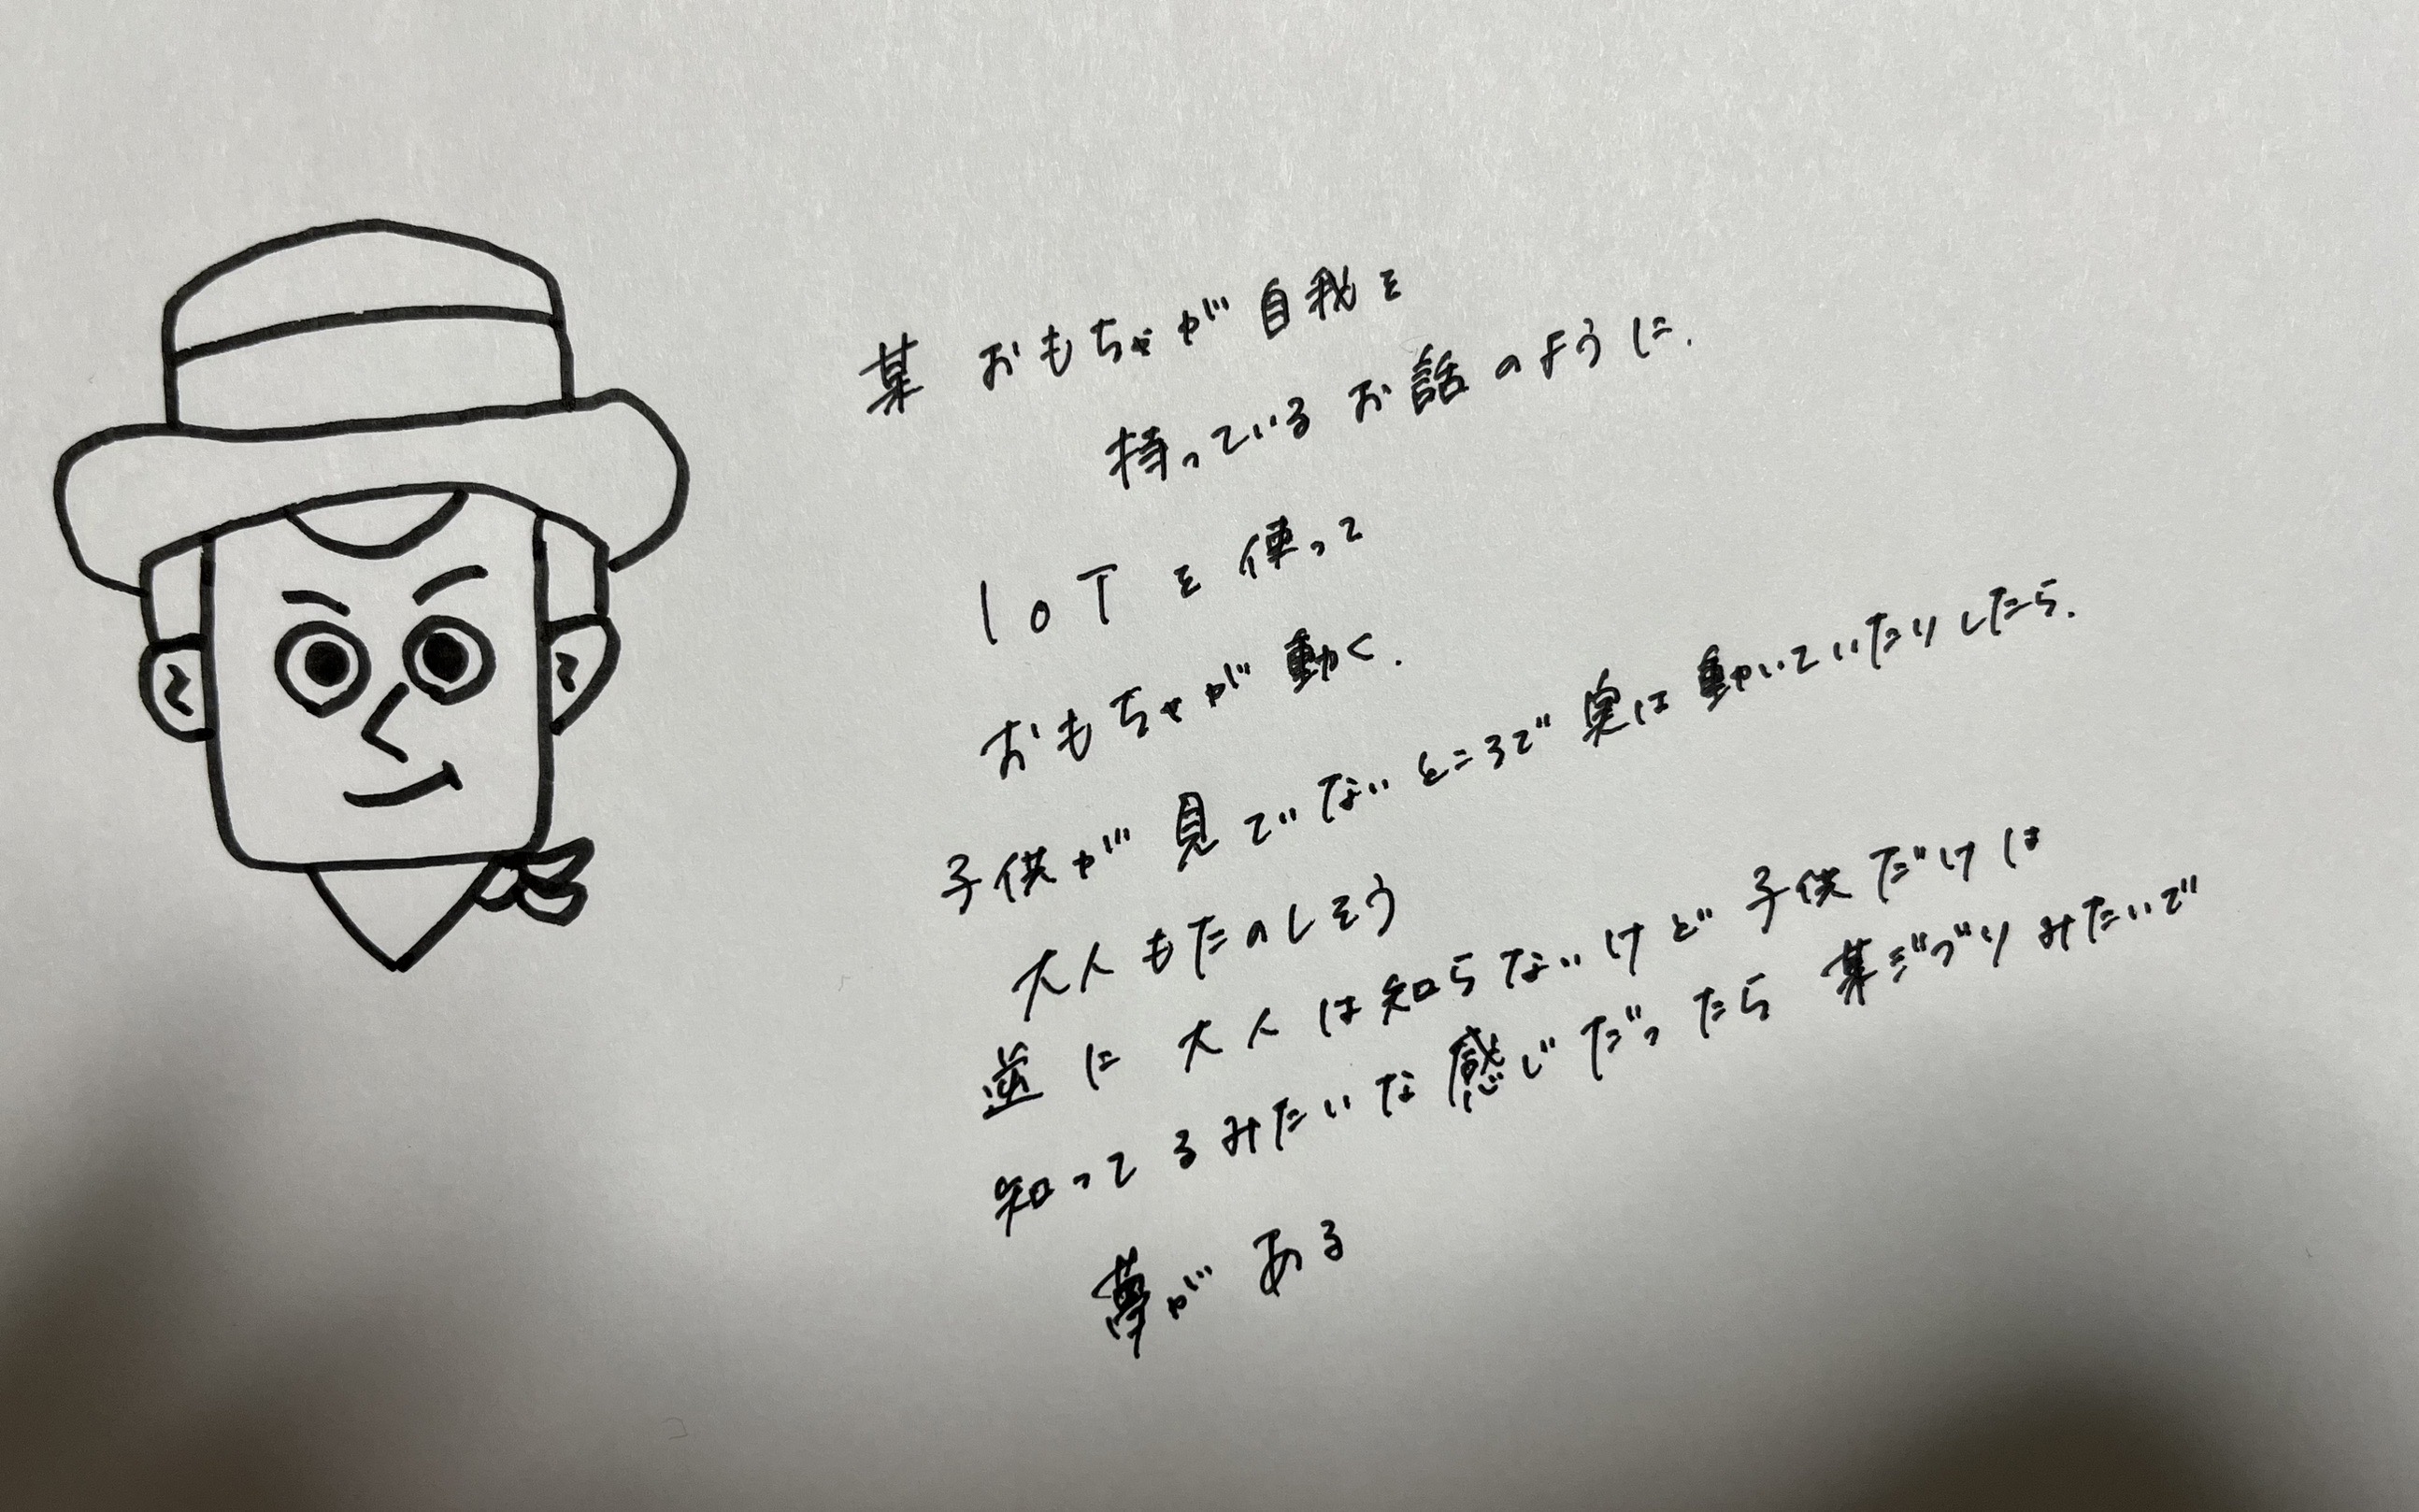 某 おもちゃが 自我を
持っている お話 のように.
IoT を 使って
おもちゃが 動く.
子供が 見てないところで 実は 動いていたりしたら.
大人もたのしそう
逆に 大人は知らないけど 子供だけは
知ってるみたいな感じだったら 某ジブリみたいで
夢がある